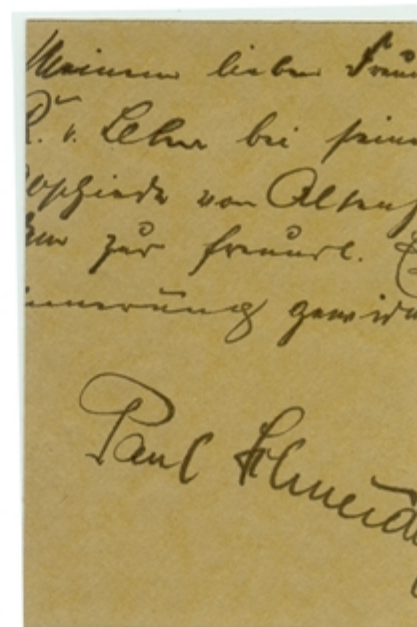 Meinem lieben Freu
R. v. Lehr bei sein
bschiede von Altenk
zur freundl. E
innerung gewid
Paul Schneide